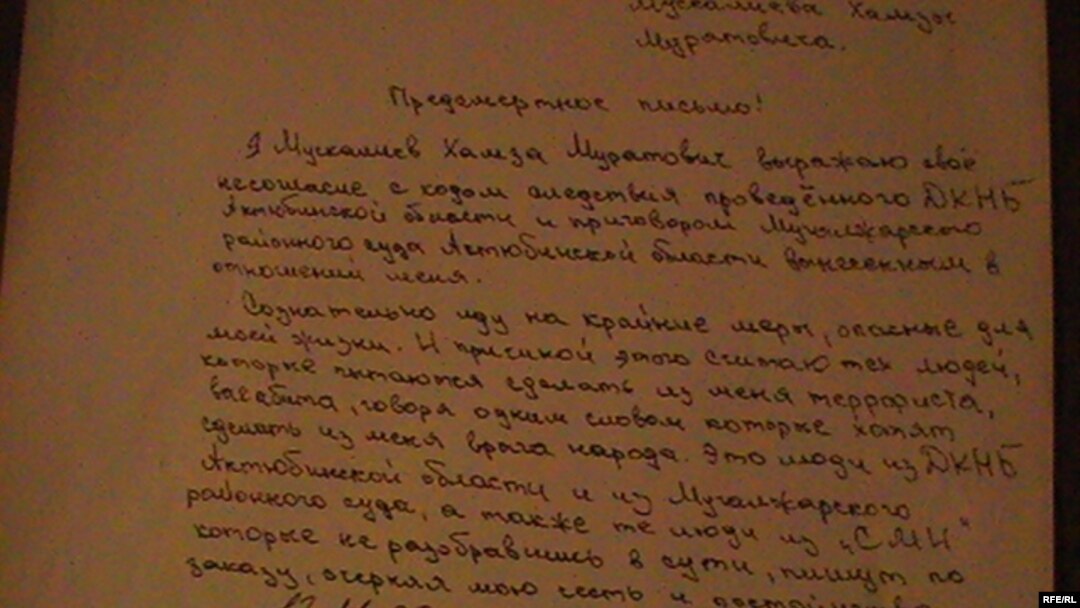 Мускалиева Хамзы
Муратовича.
Предсмертное письмо!
Я Мускалиев Хамза Муратович выражаю своё
несогласие с ходом следствия проведённого ДКНБ
Актюбинской области и приговором Мугалжарского
районного суда Актюбинской области вынесенным в
отношений меня.
Сознательно иду на крайние меры, опасные для
моей жизни. И причиной этого считаю тех людей,
которые пытаются сделать из меня террориста,
вагабита, говоря одним словом которые хотят
сделать из меня врага народа. Это люди из ДКНБ
Актюбинской области и из Мугалжарского
районного суда, а также те люди из „СМИ"
которые не разобравшись в сути, пишут по
заказу, очерняя мою честь и достоинство
RFE/RL